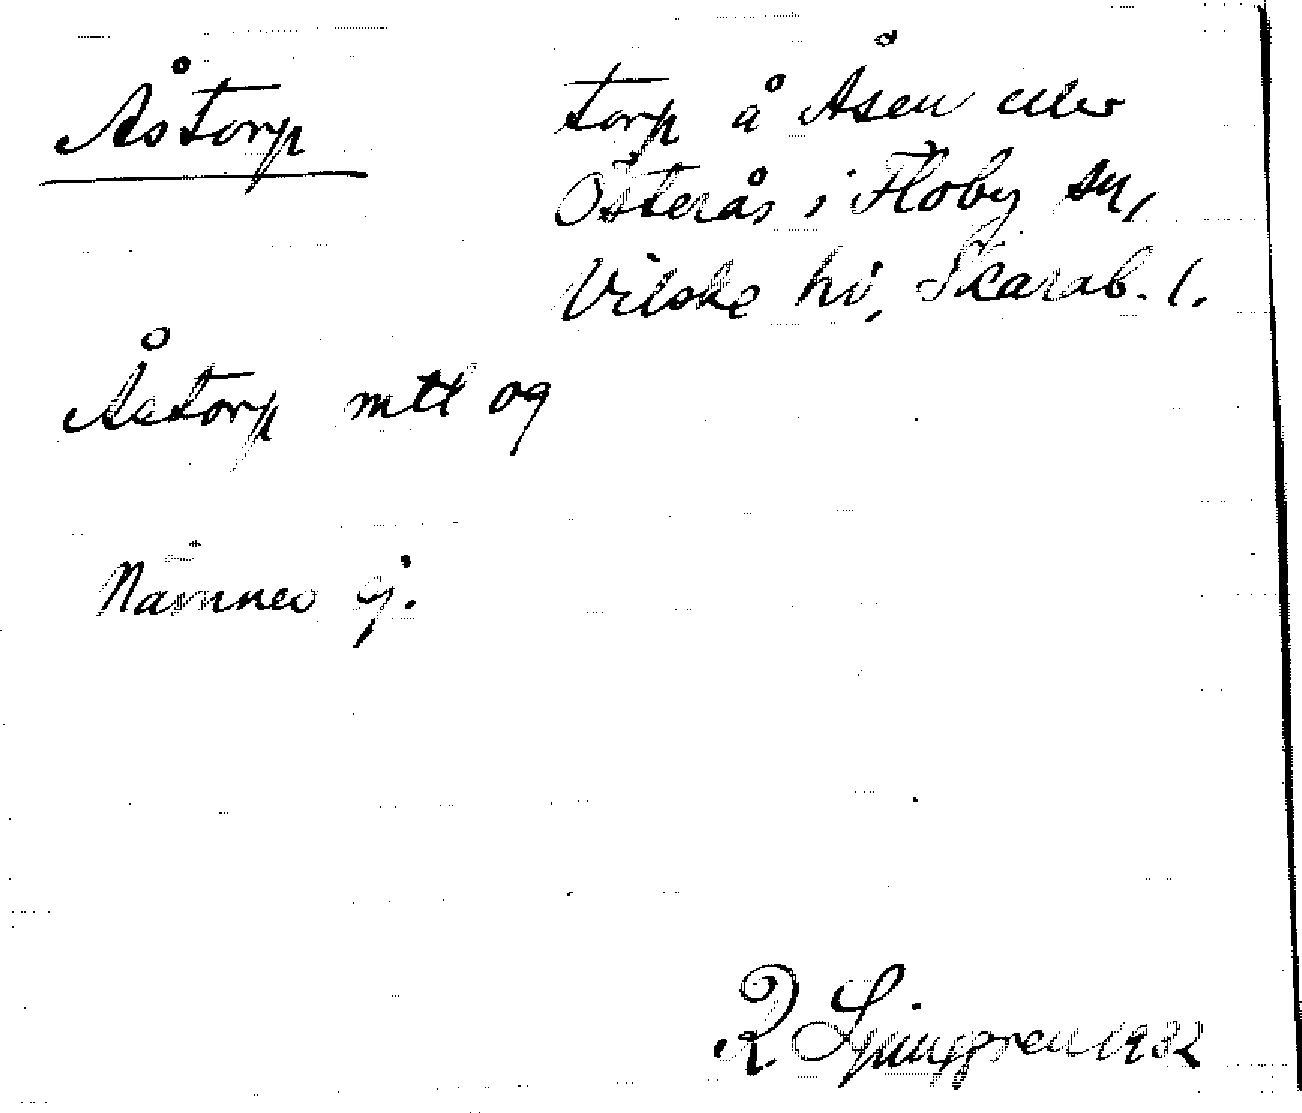 Åstorp
torp å Åsen eller
Österås i Floby sn,
Vilske hd, Skarab. l.
Åstorp mtl og
Nämnes ej.
R Ljunggren 1932